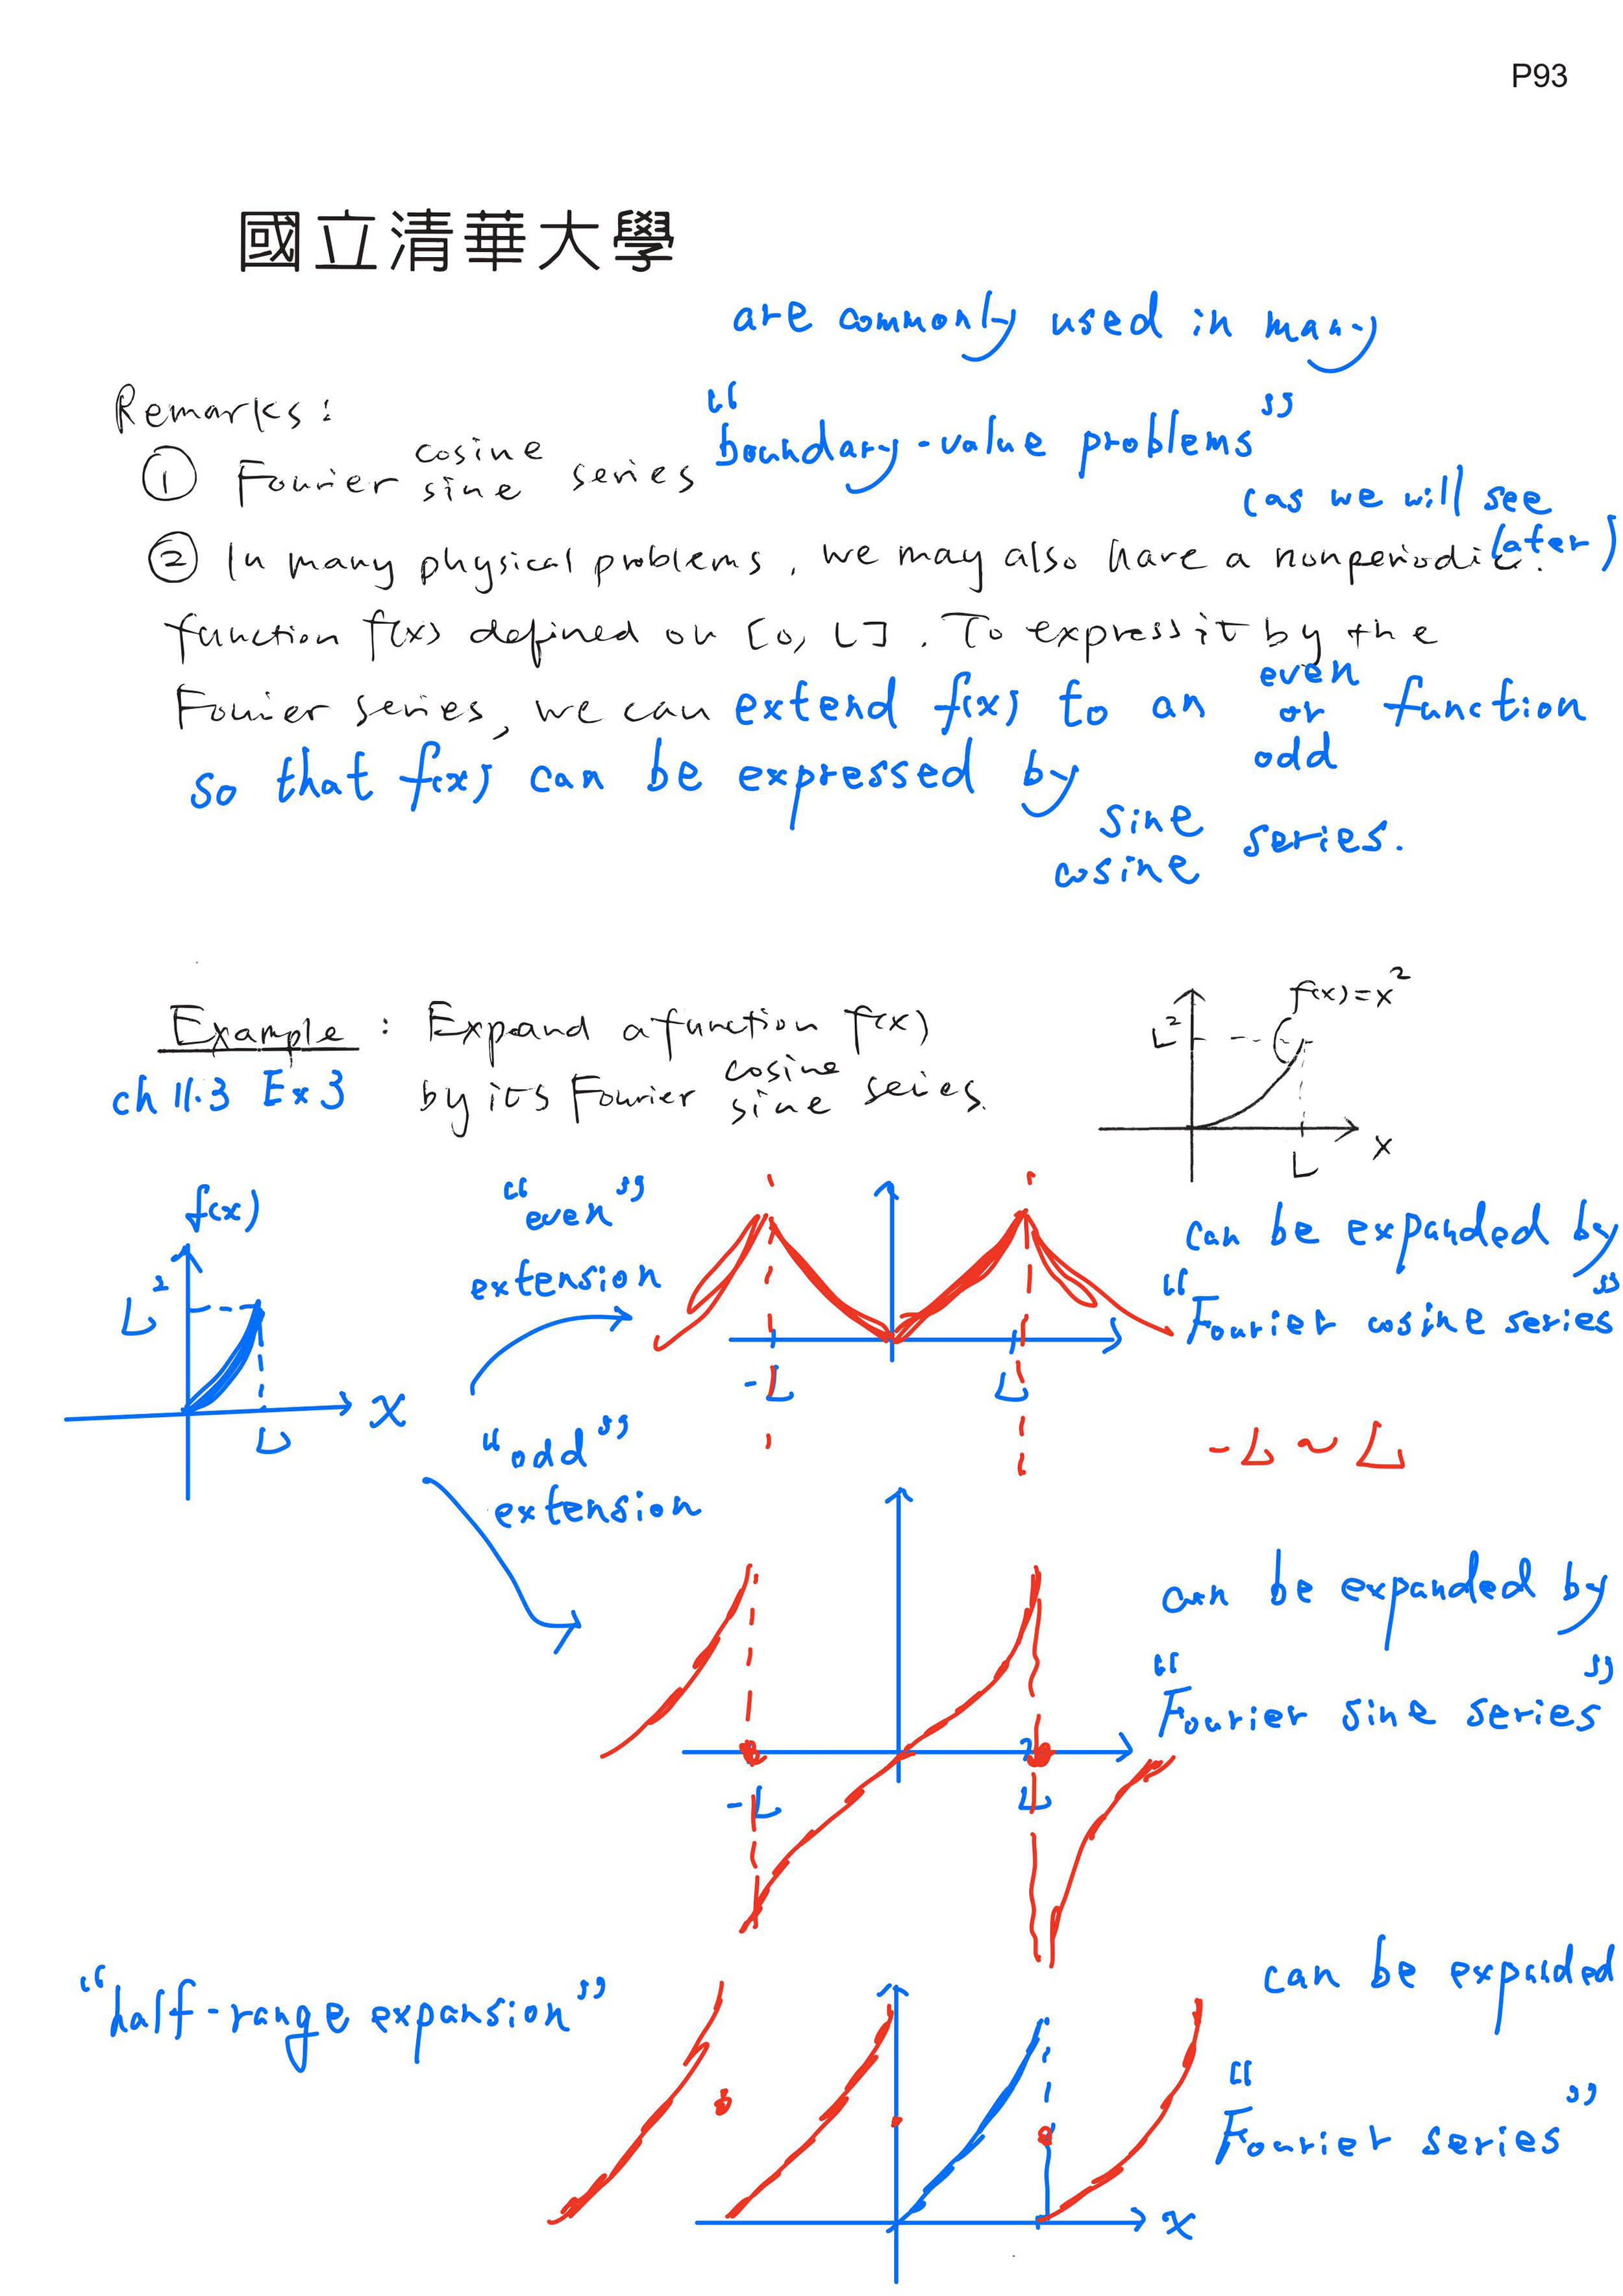 P93
國立清華大學
are commonly used in many
Remarks:
① Fourier cosine sine series "boundary-value problems"
(as we will see later)
② In many physical problems, we may also have a nonperiodic
function f(x) defined on [0, L]. To express it by the
Fourier series, we can extend f(x) to an even or odd function
so that f(x) can be expressed by
sine
cosine series.
Example: Expand a function f(x)
ch 11.3 Ex 3 by its Fourier cosine sine series.
f(x)=x²
L²
L
x
f(x)
L²
L
x
"even"
extension
-L
L
can be expanded by
"Fourier cosine series"
-L ~ L
"odd"
extension
-L
L
can be expanded by
"Fourier sine series"
"half-range expansion"
x
can be expanded
"Fourier series"